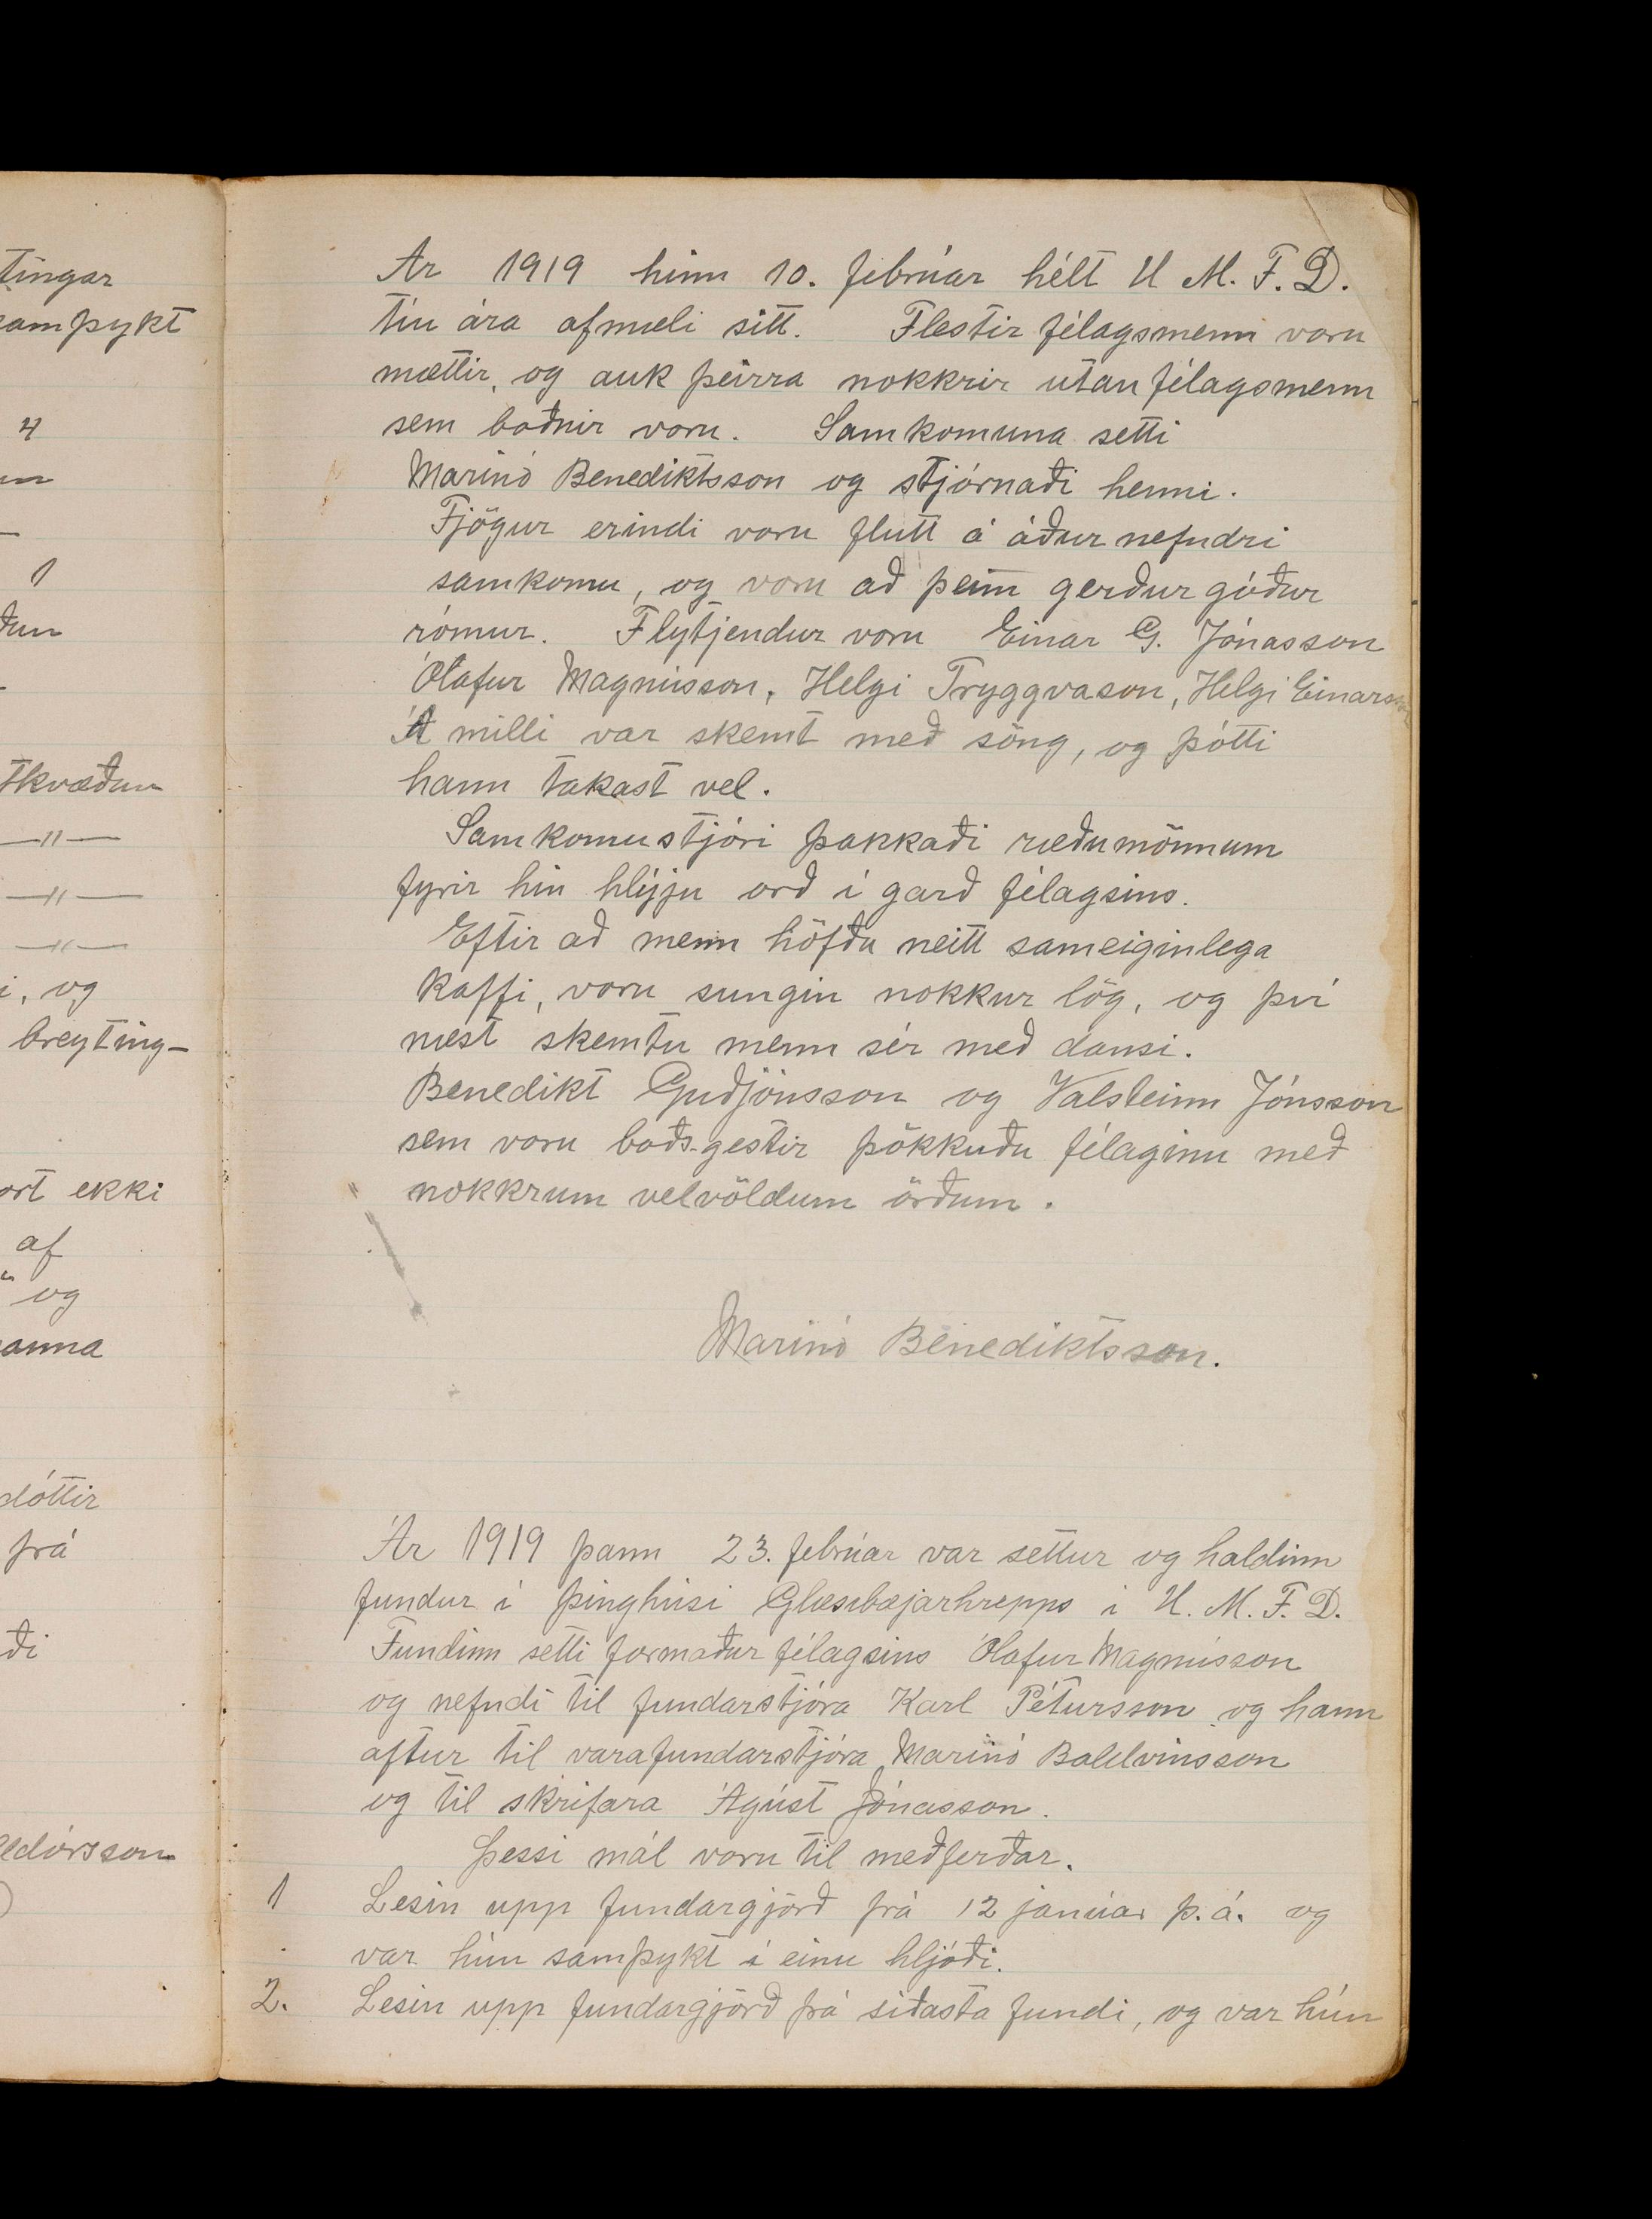 tingar
samþykt
4
1
ðun
tkvæðum
—〃—
—〃—
—〃—
i, og
breyting-
ort ekki
af
og
anna
dóttir
frá
ði
ldórsson
Ár 1919 hinn 10. febrúar hélt U M. F. D.
tíu ára afmæli sitt. Flestir félagsmenn voru
mættir, og auk þeirra nokkrir utanfélagsmenn
sem boðnir voru. Samkomuna setti
Marinó Benediktsson og stjórnaði henni.
Fjögur erindi voru flutt á áður nefndri
samkomu, og voru að þeim gerður góður
rómur. Flytjendur voru Einar G. Jónasson
Ólafur Magnússon, Helgi Tryggvason, Helgi Einarsson
Á milli var skemt með söng, og þótti
hann takast vel.
Samkomustjóri þakkaði ræðumönnum
fyrir hin hlýju orð í garð félagsins.
Eftir að menn höfðu neitt sameiginlega
kaffi, voru sungin nokkur lög, og því
næst skemtu menn sér með dansi.
Benedikt Guðjónsson og Valsteinn Jónsson
sem voru boðs-gestir þökkuðu félaginu með
nokkrum velvöldum orðum.
Marinó Benediktsson.
Ár 1919 þann 23. febrúar var settur og haldinn
fundur í þinghúsi Glæsibæjarhrepps í U. M. F. D.
Fundinn setti formaður félagsins Ólafur Magnússon
og nefndi til fundarstjóra Karl Pétursson og hann
aftur til varafundarstjóra Marinó Baldvinsson
og til skrifara Ágúst Jónasson.
Þessi mál voru til meðferðar.
1 Lesin upp fundargjörð frá 12 janúar þ.á. og
var hún samþykt í einu hljóði.
2. Lesin upp fundargjörð frá síðasta fundi, og var hún